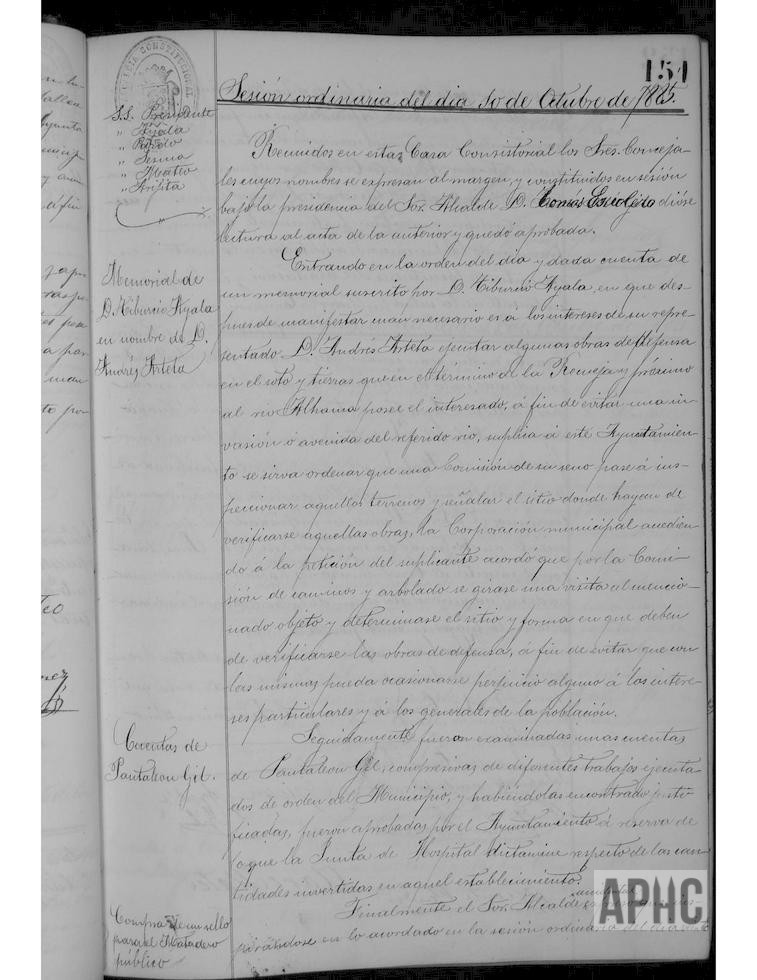 151
Sesión ordinaria del dia 10 de Octubre de 1885.
S.S. Presidente
" Ayala
" Pulido
" Sesma
" Mateo
" Arpita
"
Reunidos en estas Casa Consistorial los Sres. Conceja-
les cuyos nombres se expresan al margen, y constituidos en sesión
bajo la presidencia del Sor. Alcalde D. Tomás Escolgido dióse
lectura al acta de la anterior y quedó aprobada.
Memorial de
D. Tiburcio Ayala
en nombre de D.
Andrés Arteta
Entrando en la orden del dia y dada cuenta de
un memorial suscrito por D. Tiburcio Ayala, en que des-
pues de manifestar cuan necesario es á los intereses de su repre-
sentado D. Andrés Arteta ejecutar algunas obras de defensa
en el soto y tierras que en el término de la y próximo
al rio Alhama posee el interesado, á fin de evitar una in-
vasión ó avenida del referido rio, suplica á este Ayuntamien-
to se sirva ordenar que una Comisión de su seno pase á ins-
peccionar aquellos terrenos y señalar el sitio donde hayan de
verificarse aquellas obras, la Corporación municipal accedien-
do á la petición del suplicante acordó que por la Comi-
sión de caminos y arbolado se girase una visita al mencio-
nado objeto y determinase el sitio y forma en que deben
de verificarse las obras de defensa, á fin de evitar que con
las mismas pueda ocasionarse perjuicio alguno á los intere-
ses particulares y á los generales de la población.
Cuentas de
Pantaleon Gil.
Seguidamente fueron examinadas unas cuentas
de Pantaleon Gil, compresivas de diferentes trabajos ejecuta-
dos de orden del Municipio, y habiéndolas encontrado justi-
ficadas, fueron aprobadas por el Ayuntamiento á reserva de
lo que la Junta de Hospital dictamine respecto de las can-
tidades invertidas en aquel establecimiento.
Compra de un sello
para el Matadero
público
Finalmente el Sor. Alcalde
en lo acordado en la sesión ordinaria del dia
APHC